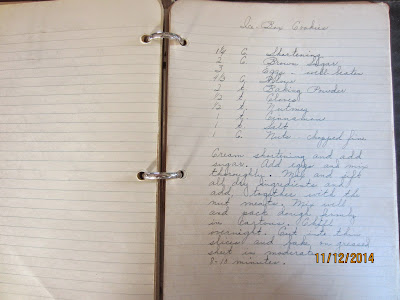 Ice-Box Cookies
C. Shortening
2 C. Brown Sugar
3 Eggs - well beaten
C. Flour
2 t. Baking Powder
t. Cloves
t. Nutmeg
1 t. Cinnamon
1 t. Salt
1 C. Nuts chopped fine
Cream shortening and add
sugar. Add eggs and mix
thoroughly. Mix and sift
all dry ingredients and
add, together with the
nut meats. Mix well
and pack dough firmly
in cartons. Chill
overnight. Cut into thin
slices and bake on greased
sheet in moderate
8-10 minutes.
11/12/2014